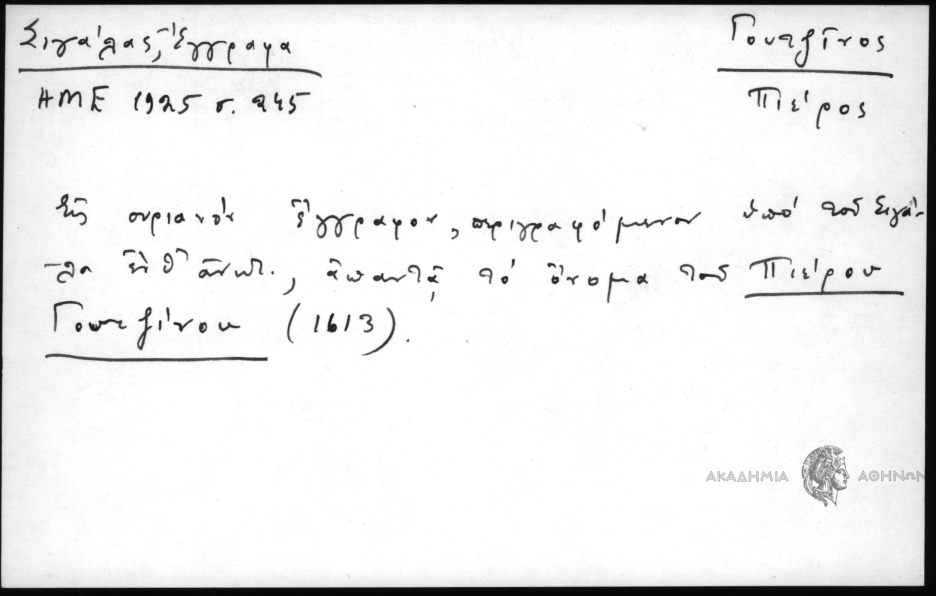 Σιγάλας, Ἔγγραφα
ΗΜΕ 1925 σ. 245
Γουτζῖνος
Πιέρος
Εἰς συριανὸν ἔγγραφον, περιγραφόμενον ὑπὸ τοῦ Σιγά-
λα ἔνθ' ἀνωτ., ἀπαντᾷ τὸ ὄνομα τοῦ Πιέρου
Γουτζίνου (1613).
ΑΚΑΔΗΜΙΑ ΑΘΗΝΩΝ